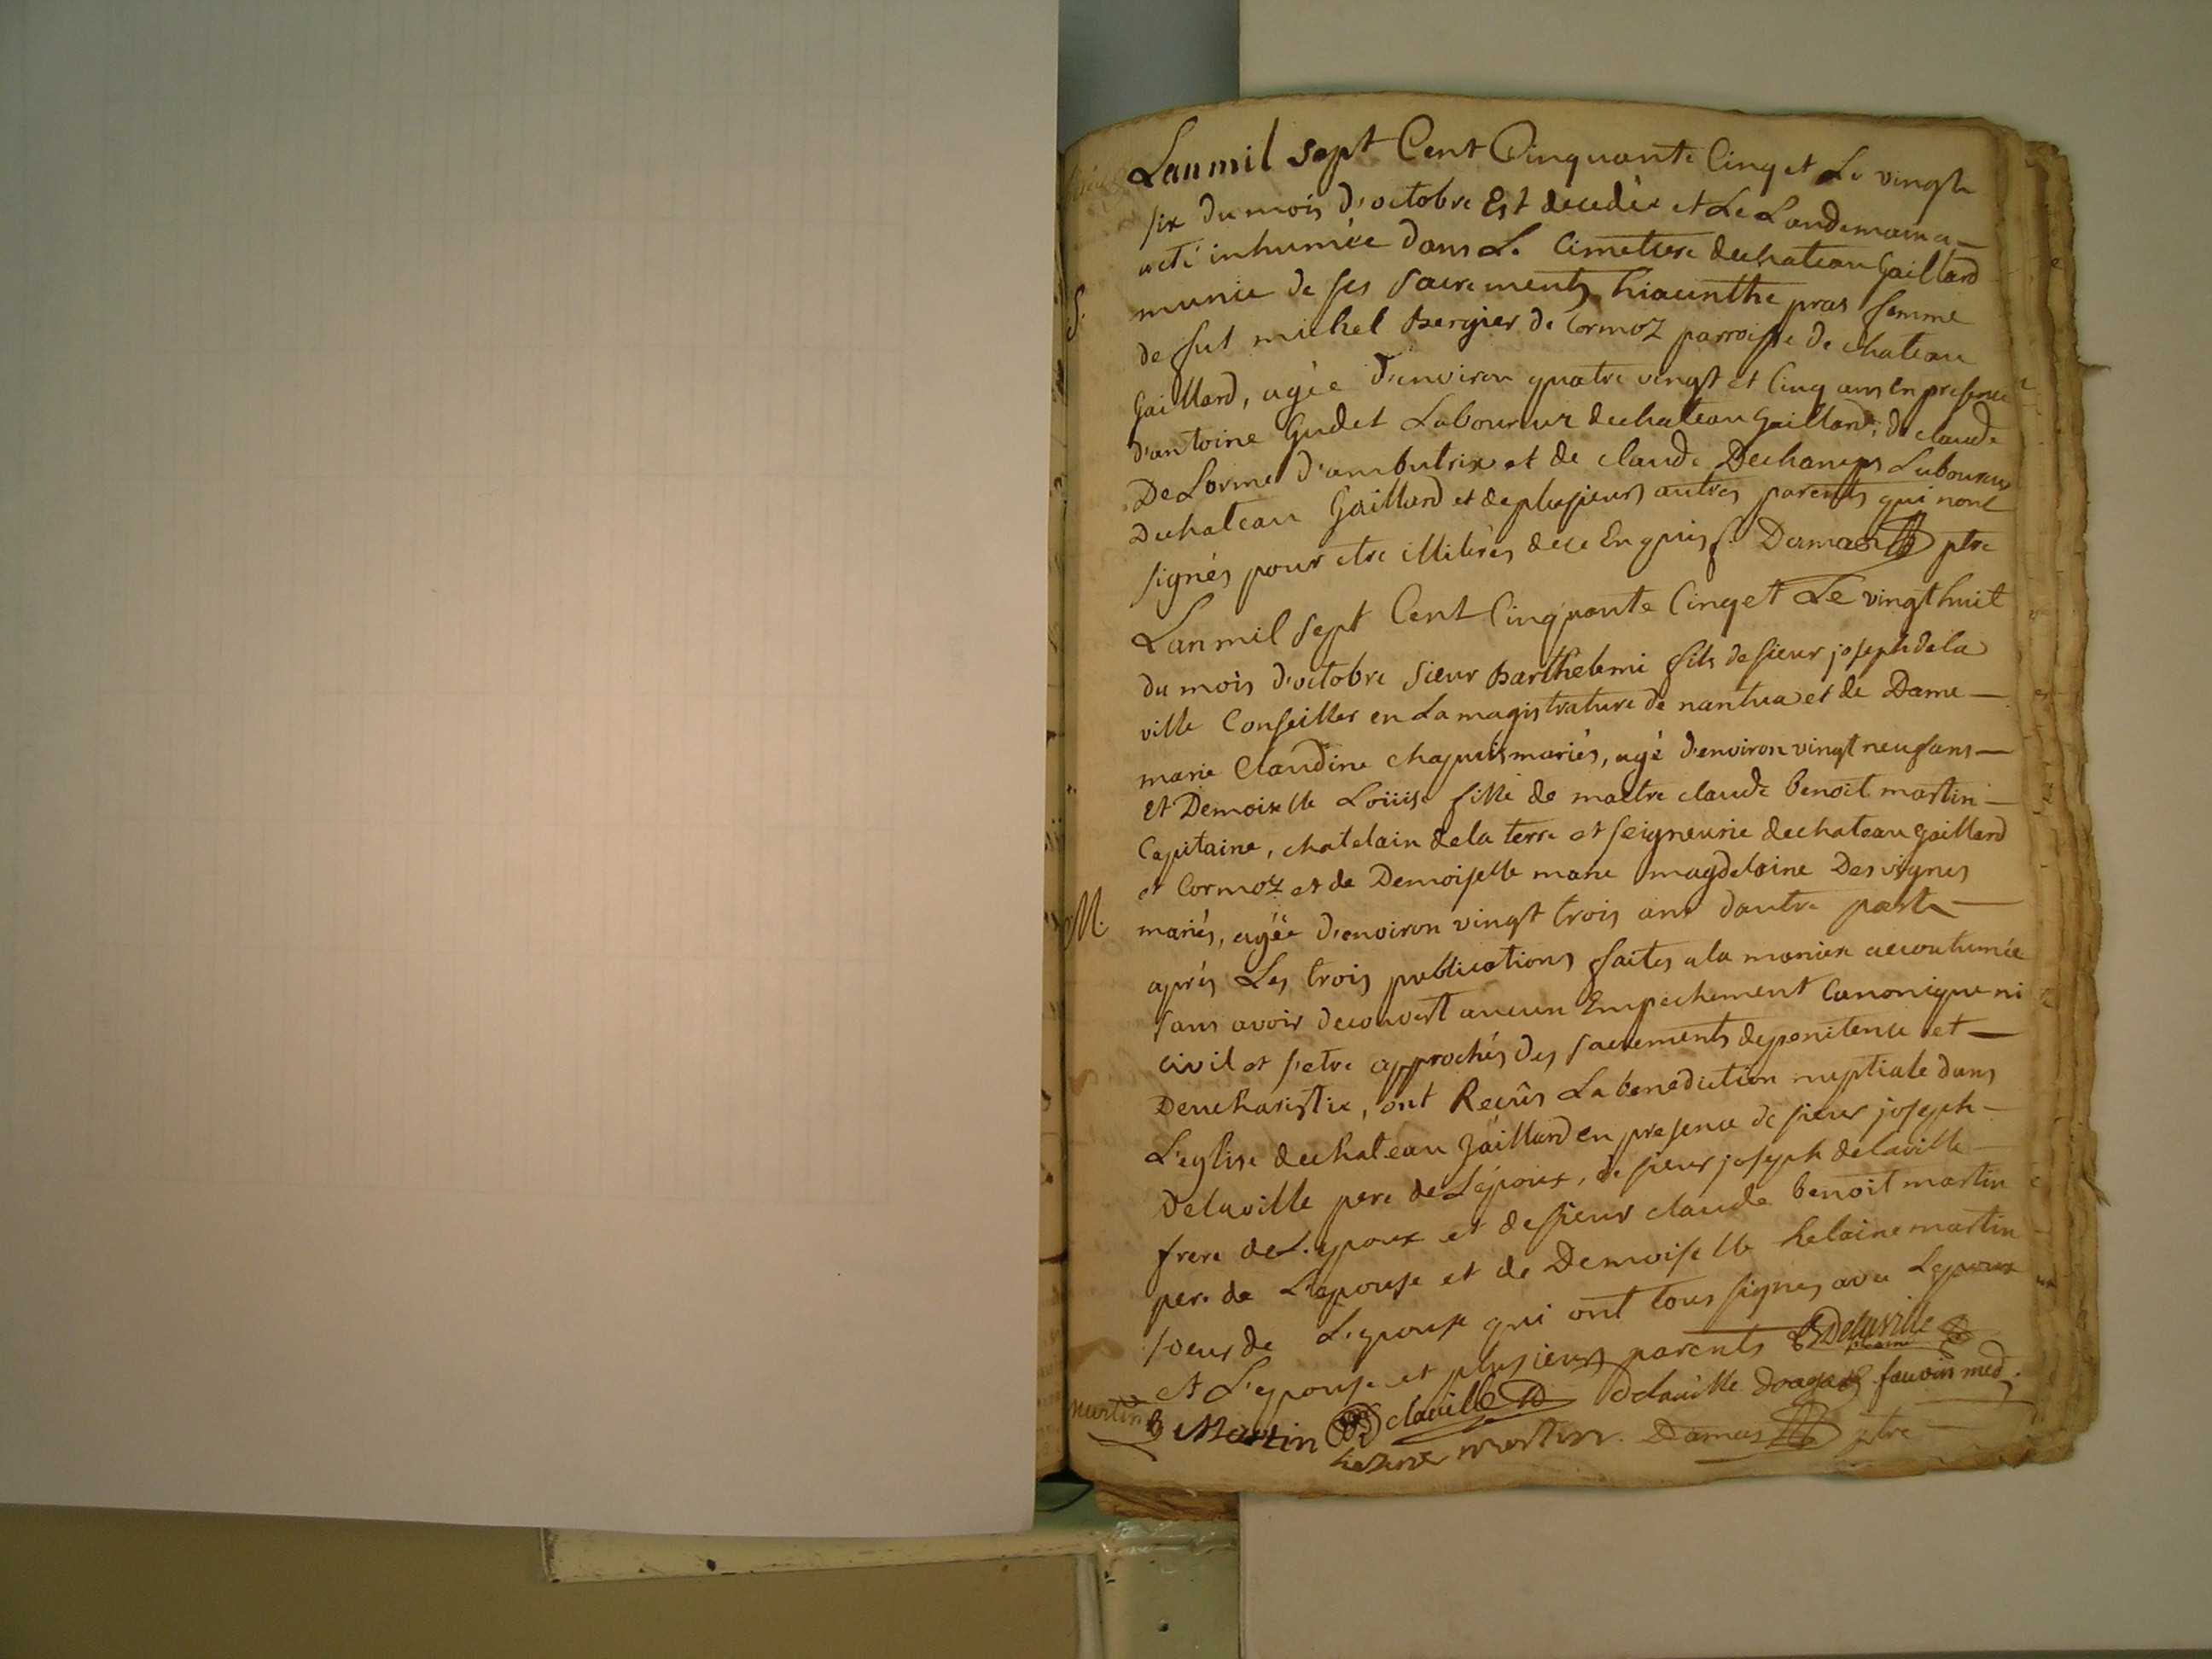 Lan mil sept Cent Cinquante Cinq et Le vingt
six du mois d'octobre Est decedée et Le Landemain a
eté inhumée dans Le Cimetiere dechateau Gaillard
S. munie de ses sacrements hiacinthe pras femme
de fut michel Bergier de Cormoz parroisse de chateau
Gaillard, agée d'environ quatre vingt et Cinq ans En presence
d'antoine Gudet Laboureur dechateau Gaillard, de claude
De Lorme d'ambutrix et de claude Dechamps Laboureur
Dechateau Gaillard et de plusieurs autres parents qui n'ont
signés pour etre illiterés dece Enquis /. Damas ptre
Lan mil sept Cent Cinquante Cinq et Le vingt huit
du mois d'octobre sieur Barthelemi fils de sieur joseph de la
ville Conseiller en La magistrature de nantua et de Dame
marie Claudine chapuis mariés, agé d'environ vingt neuf ans
et Demoiselle Loüise fille de maitre claude benoit martin
Capitaine, chatelain de la terre et seigneurie dechateau gaillard
et Cormoz et de Demoiselle marie magdelaine Desvignes
M. mariés, agée d'environ vingt trois ans dautre part
aprés Les trois publications faites a la maniere accoutumée
sans avoir decouvert aucun Empechement Canonique ni
civil et s'etre approchés des sacrements de penitence et
Deucharistie, ont Reçûs La benediction nuptiale dans
L'eglise dechateau Gaillard en presence de sieur joseph
Delaville pere de L'epoux, de sieur joseph delaville
frere de L'epoux et de sieur claude benoit martin
pere de L'epouse et de Demoiselle helaine martin
soeur de L'epouse qui ont tous signés avec L'epoux
et L'epouse et plusieurs parents Delaville
martin Martin delaville Delaville fauvin med.
helene martin. Damas ptre